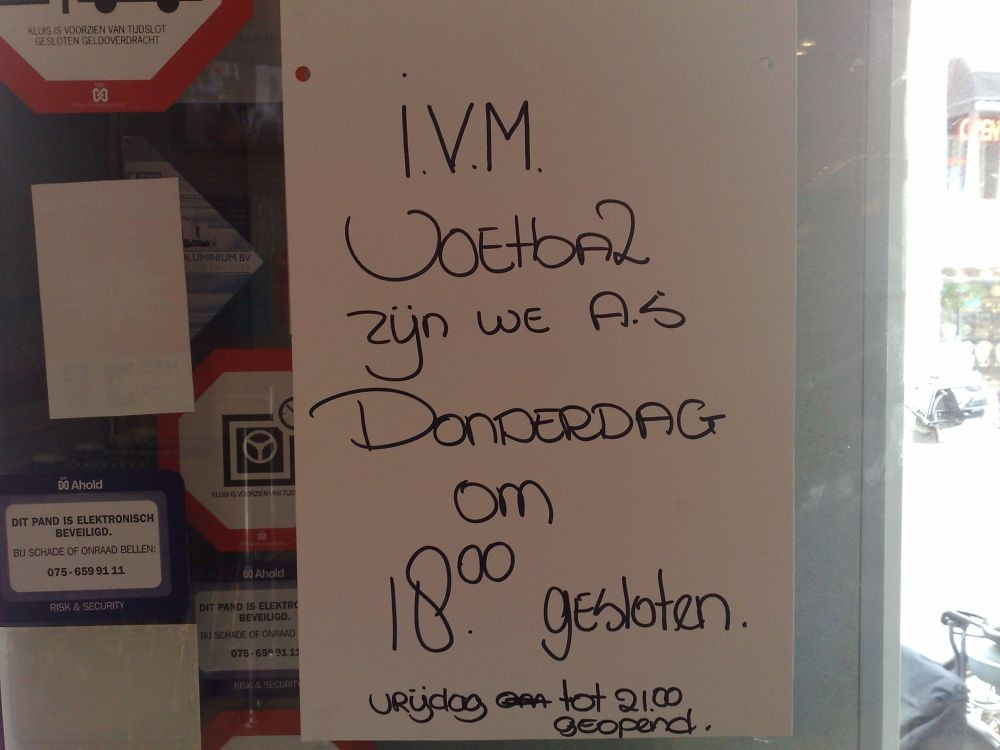 KLUIS IS VOORZIEN VAN TIJDSLOT
GESLOTEN GELDOVERDRACHT
I.V.M.
VOETBAL
ZIJN WE A.S
DONDERDAG
OM
18.00 GESLOTEN.
VRIJDAG tot 21.00
GEOPEND.
ALUMINIUM BV
KLUIS IS VOORZIEN VAN TIJD
Ahold
DIT PAND IS ELEKTRONISCH
BEVEILIGD.
BIJ SCHADE OF ONRAAD BELLEN:
075-659 91 11
RISK & SECURITY
Ahold
DIT PAND IS ELEKTRO
BIJ SCHADE OF ONRAAD
075-659 91 11
RISK & SECURITY